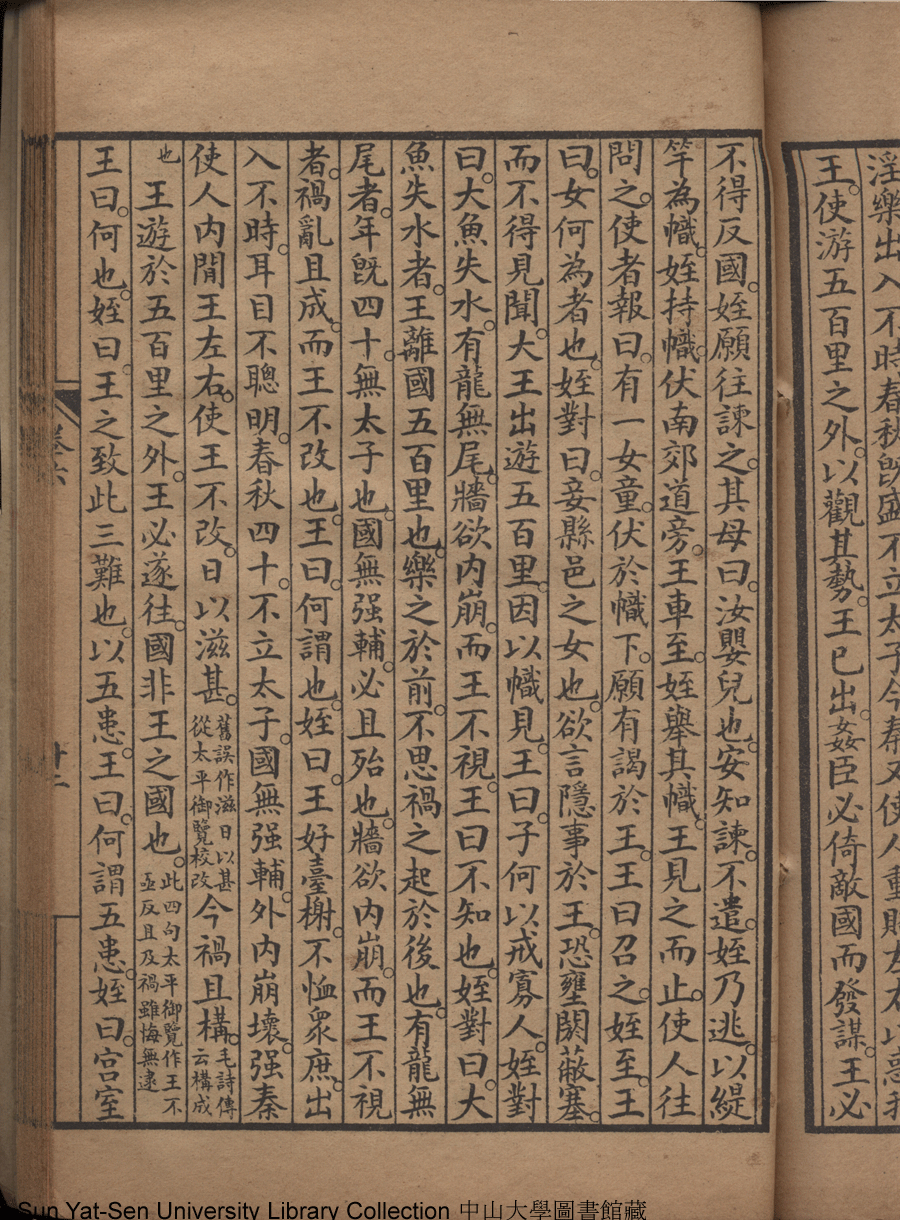 淫樂出入不時春秋既盛不立太子今秦又使人重賂左右以惑我
王使游五百里之外以觀其勢王已出姦臣必倚敵國而發謀王必
不得反國姪願往諫之其母曰汝嬰兒也安知諫不遣姪乃逃以緹
竿為幟姪持幟伏南郊道旁王車至姪舉其幟王見之而止使人往
問之使者報曰有一女童伏於幟下願有謁於王王曰召之姪至王
曰女何為者也姪對曰妾縣邑之女也欲言隱事於王恐壅閼蔽塞
而不得見聞大王出遊五百里因以幟見王曰子何以戒寡人姪對
曰大魚失水有龍無尾牆欲內崩而王不視王曰不知也姪對曰大
魚失水者王離國五百里也樂之於前不思禍之起於後也有龍無
尾者年既四十無太子也國無强輔必且殆也牆欲內崩而王不視
者禍亂且成而王不改也王曰何謂也姪曰王好臺榭不恤眾庶出
入不時耳目不聰明春秋四十不立太子國無强輔外內崩壞强秦
使人內閒王左右使王不改日以滋甚舊誤作滋日以甚從太平御覽校改今禍且構毛詩傳云構成
也王遊於五百里之外王必遂往國非王之國也此四句太平御覽作王不亟反且及禍雖悔無逮
王曰何也姪曰王之致此三難也以五患王曰何謂五患姪曰宮室
卷六
十二
Sun Yat-Sen University Library Collection 中山大學圖書館藏